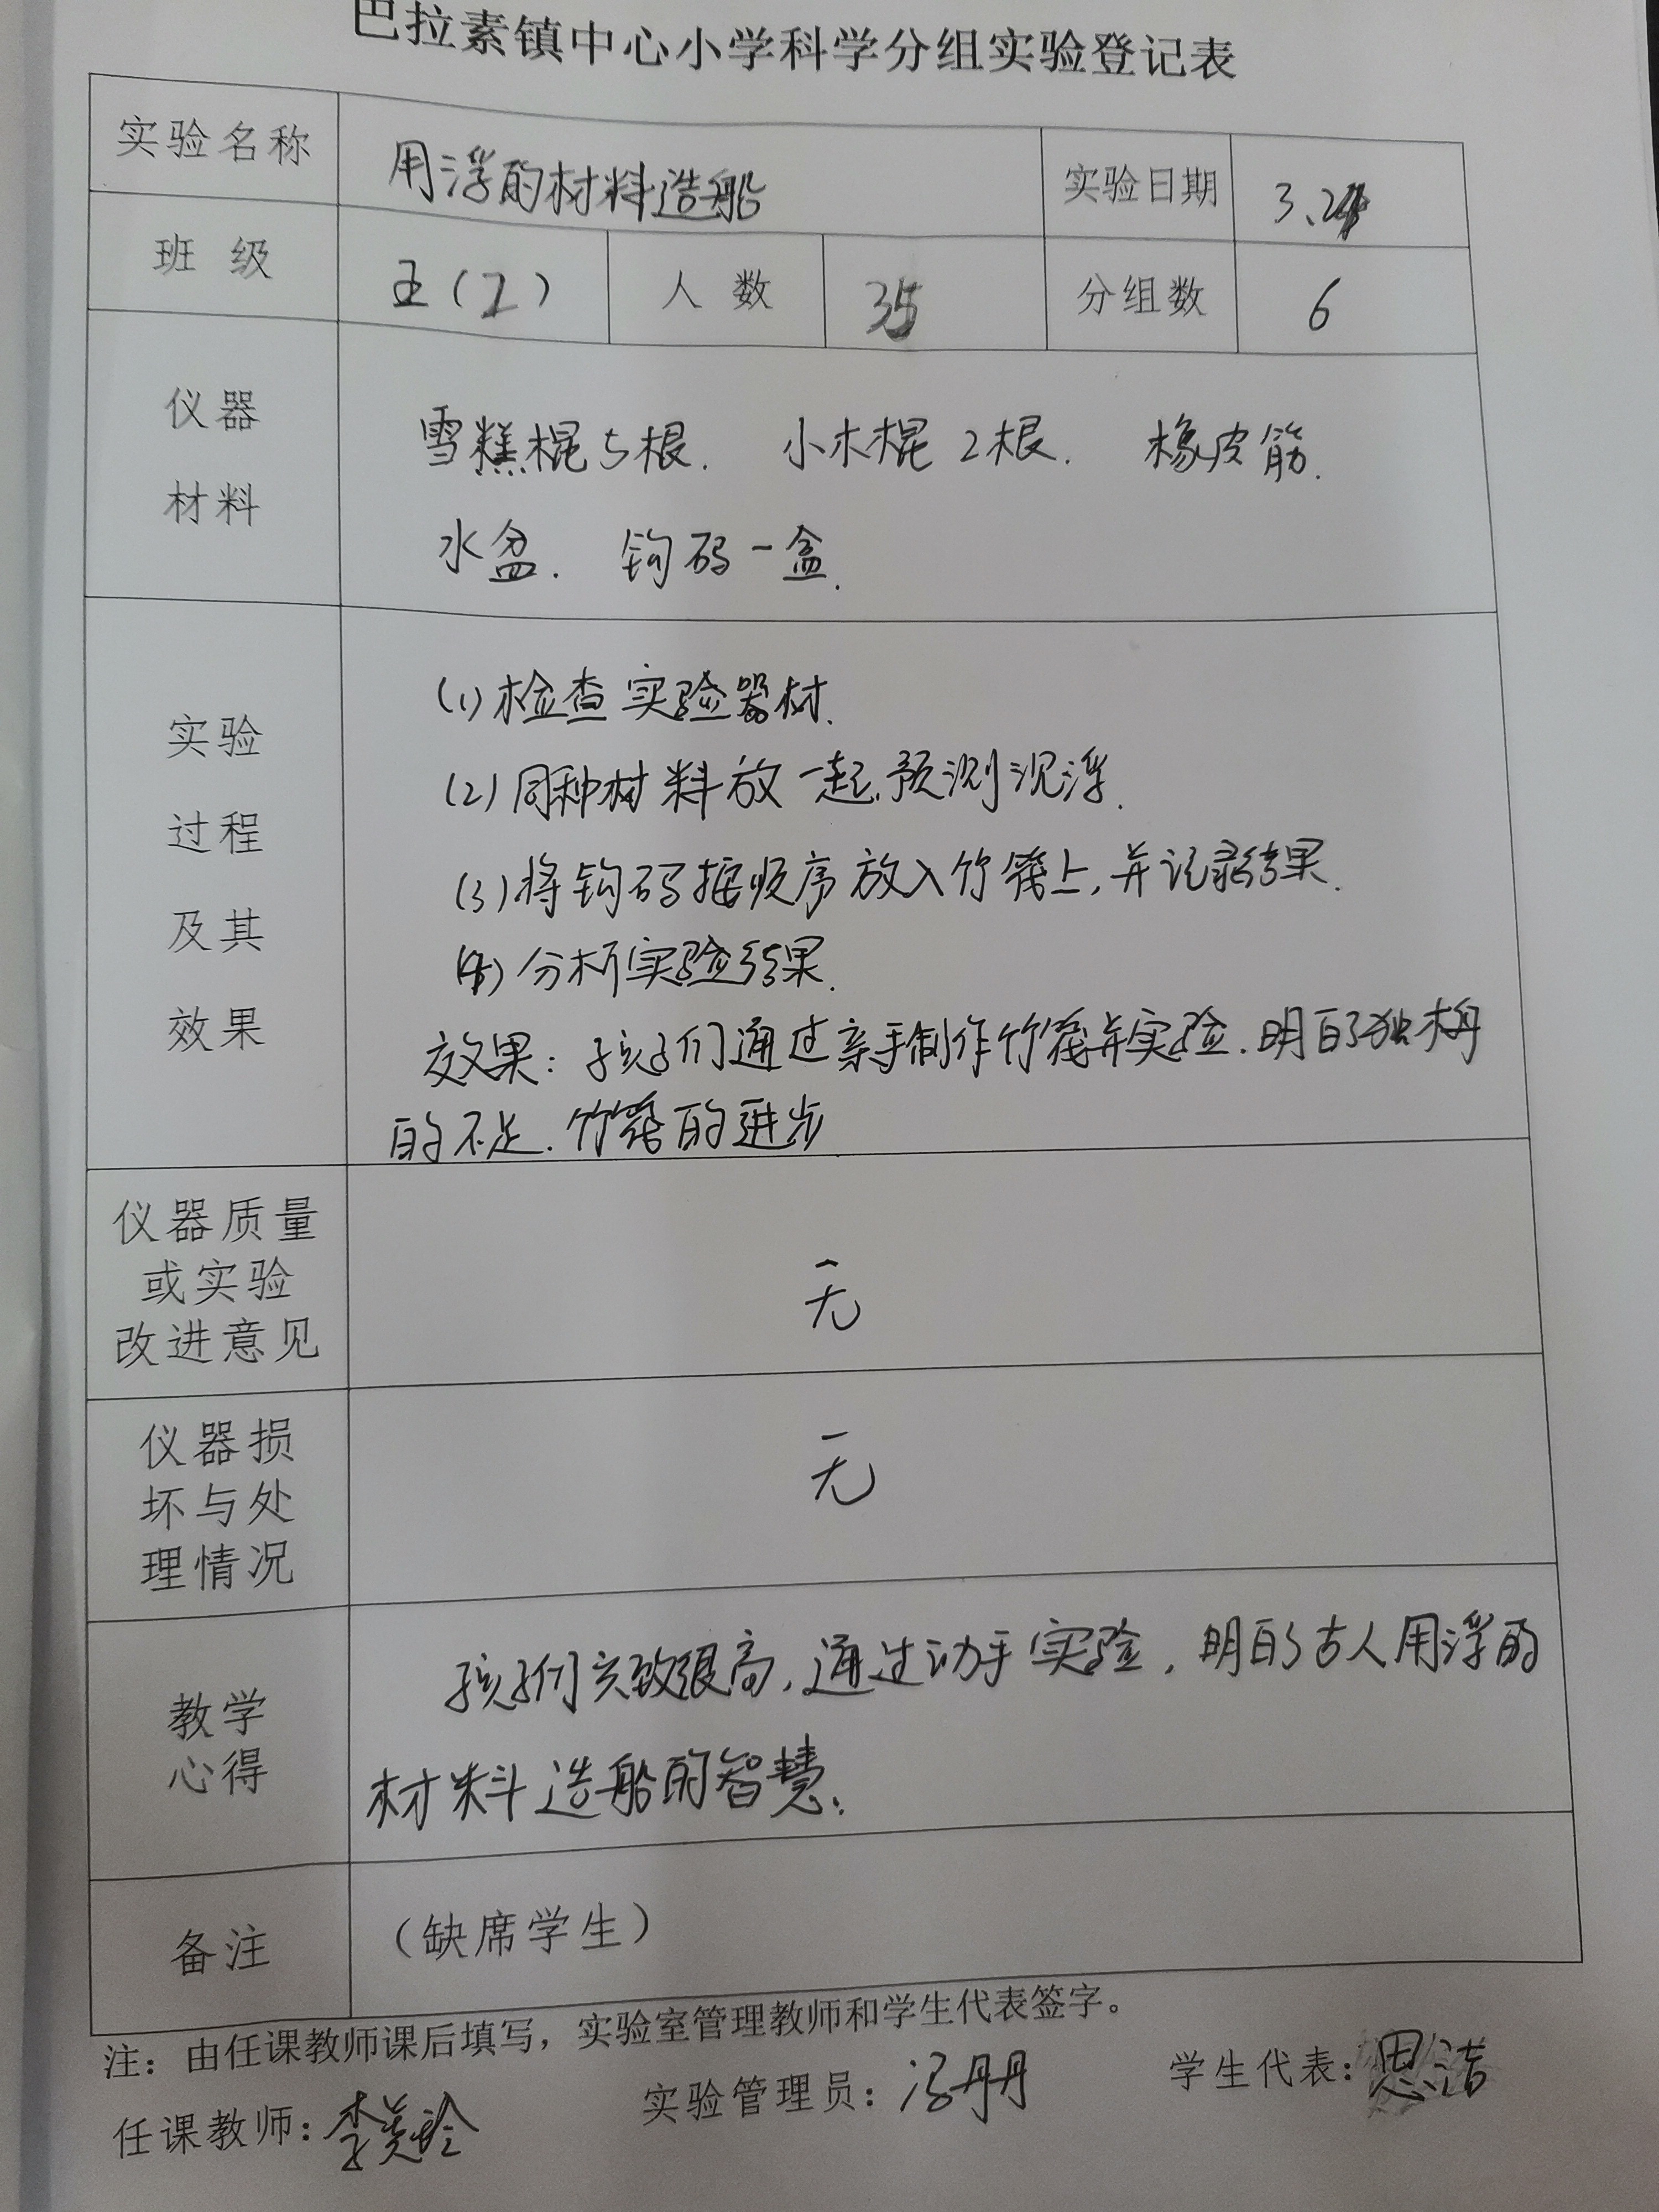 巴拉素镇中心小学科学分组实验登记表
实验名称 用浮的材料造船 实验日期 3.
班 级 五(2) 人 数 35 分组数 6
仪器
材料
雪糕棍5根. 小木棍2根. 橡皮筋.
水盆. 钩码一盒.
实验
过程
及其
效果
(1)检查实验器材.
(2)同种材料放一起,预测沉浮.
(3)将钩码按顺序放入竹筏上,并记录结果.
(4)分析实验结果.
效果:孩子们通过亲手制作竹筏并实验.明白了独木舟
的不足.竹筏的进步
仪器质量
或实验
改进意见
无
仪器损
坏与处
理情况
无
教学
心得
孩子们兴致很高,通过动手实验,明白了古人用浮的
材料造船的智慧.
备注 (缺席学生)
注:由任课教师课后填写,实验室管理教师和学生代表签字。
任课教师:李美玲 实验管理员:冯丹丹 学生代表:思洁